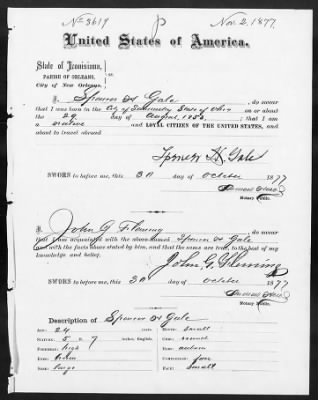 No 3619
Nov. 2, 1877.
United States of America.
State of Louisiana,
PARISH OF ORLEANS,
City of New Orleans.
ss.
I, Spencer H Gale, do swear
that I was born in the City of State of Ohio
the 29 day of August, 1853, that I am
a native and LOYAL CITIZEN OF THE UNITED STATES, and
about to travel abroad
Spencer H. Gale
SWORN to before me, this 30 day of October 1877
Notary Public.
I, John G Fleming do swear
that I am acquainted with the above-named Spencer H Gale
and with the facts above stated by him, and that the same are true, to the best of my
knowledge and belief.
John G. Fleming
SWORN to before me, this 30 day of October 1877
Notary Public.
Description of Spencer H Gale
AGE: 24
MOUTH: Small
STATURE: 5 " 7 Inches, English.
CHIN: round
FOREHEAD: high
HAIR: auburn
EYES: brown
COMPLEXION: fair
NOSE: large
FACE: Small